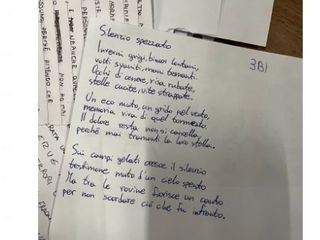 Silenzio spezzato
3BI
Inverni grigi, binari lontani,
volti spauriti, mani tremanti.
Occhi di cenere, risa rubate,
stelle cucite, vite strappate.
Un eco muto, un grido nel vento,
memoria viva di quel tormento.
Il dolore resta non si cancella
perché mai tramonti la loro stella.
Sui campi gelati cresce il silenzio
testimone muto d'un cielo spento
Ma tra le rovine fiorisce un canto
per non scordare ciò che fu infranto.